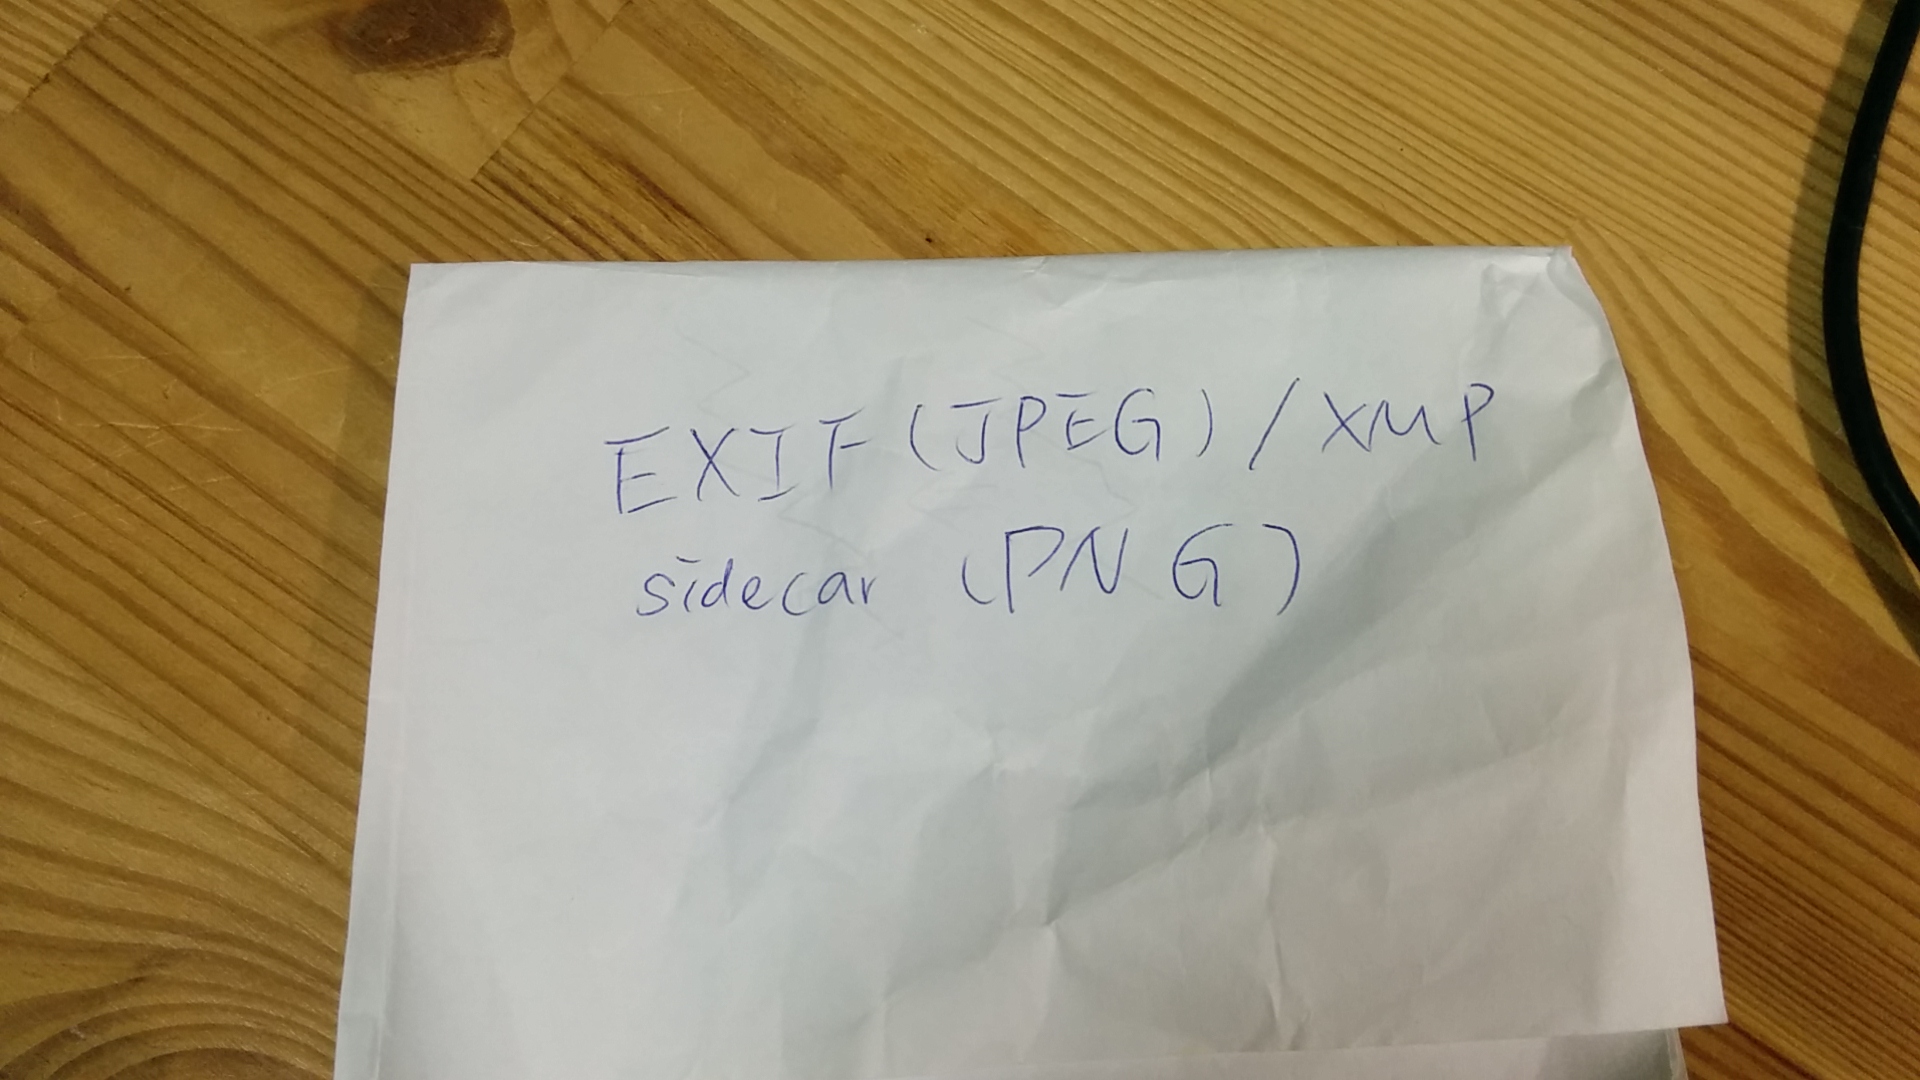 EXIF (JPEG) / XMP
sidecar (PNG)